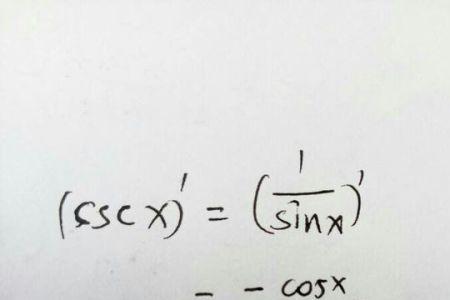 (csc x)' = (1/sinx)'
= - cosx